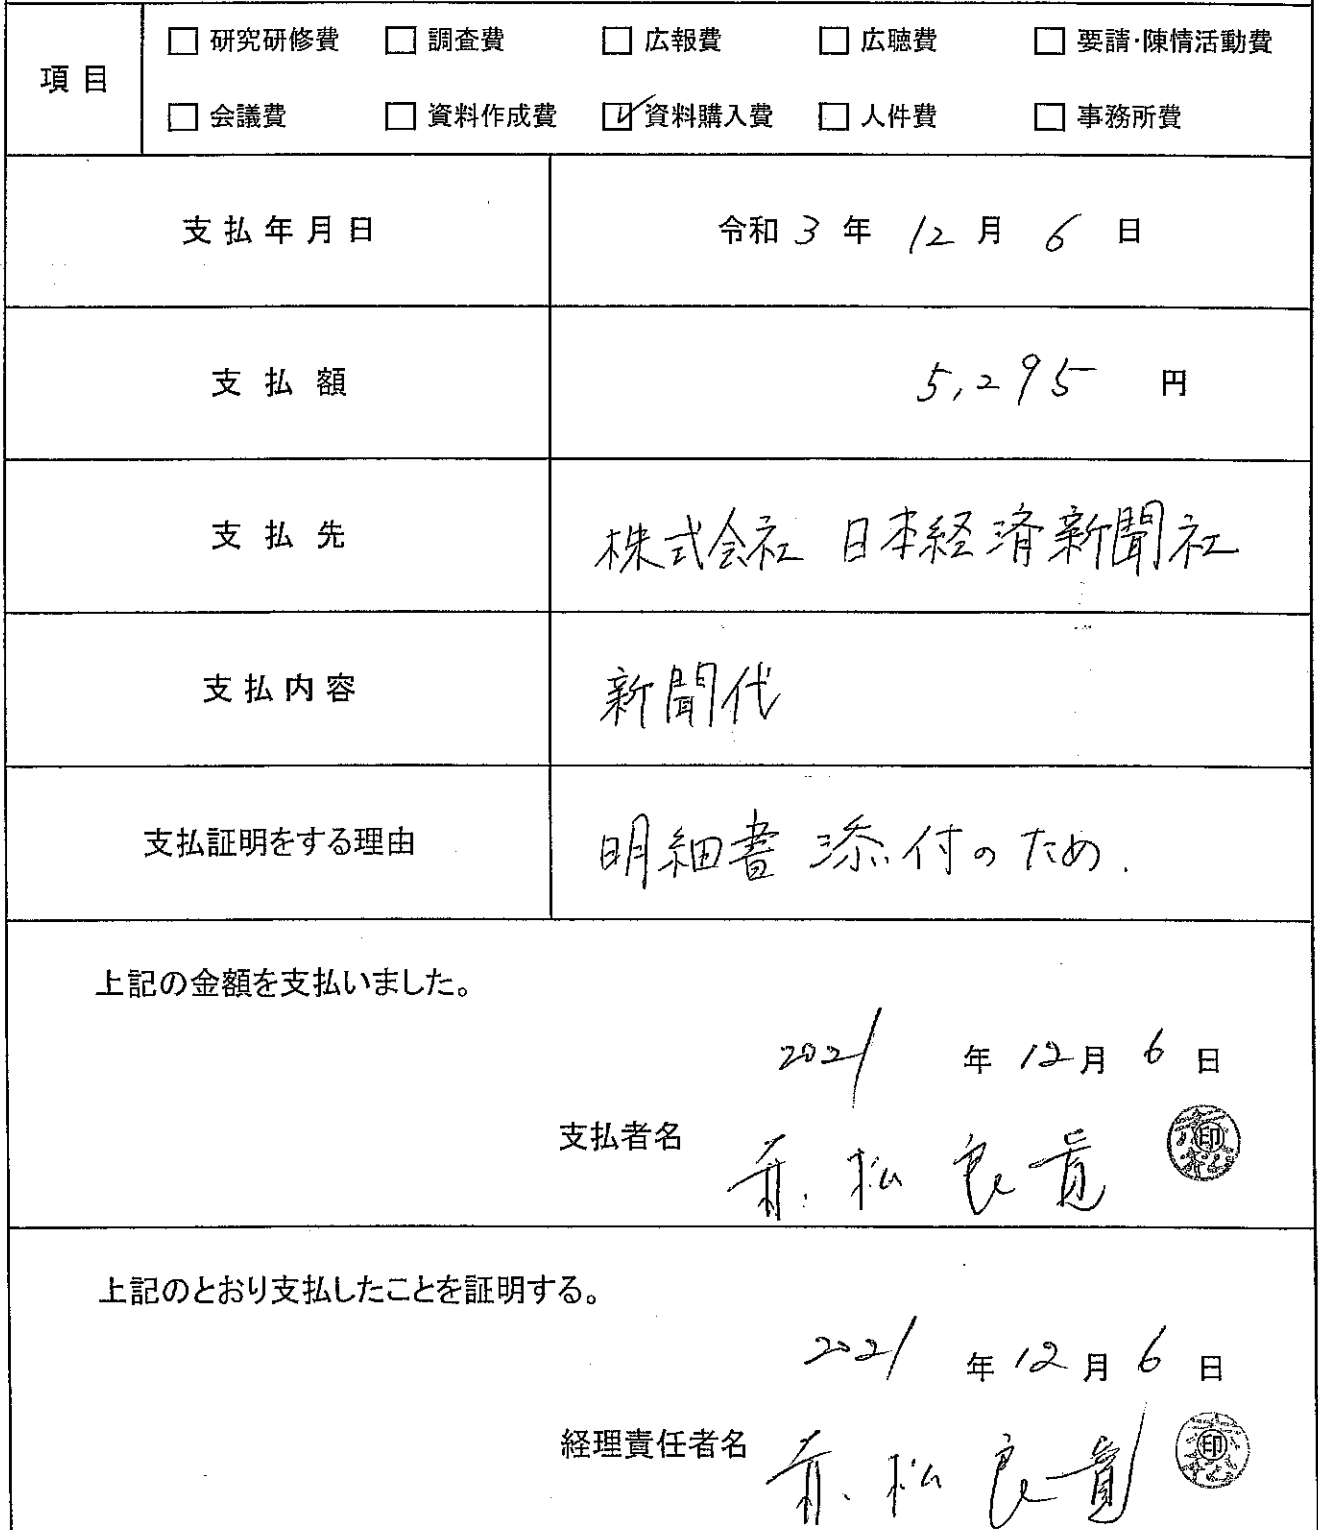 項目
□ 研究研修費 □ 調査費 □ 広報費 □ 広聴費 □ 要請・陳情活動費
□ 会議費 □ 資料作成費 ☑ 資料購入費 □ 人件費 □ 事務所費
支払年月日 令和 3 年 12 月 6 日
支払額 5,295 円
支払先 株式会社 日本経済新聞社
支払内容 新聞代
支払証明をする理由 明細書添付のため.
上記の金額を支払いました。
2021 年 12 月 6 日
支払者名 赤松良貴 印
上記のとおり支払したことを証明する。
2021 年 12 月 6 日
経理責任者名 赤松良貴 印